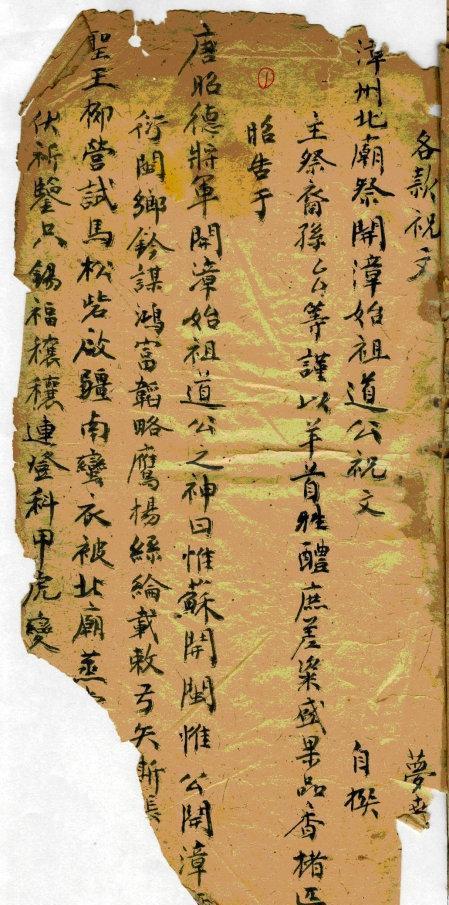 各款祝文 夢
漳州北廟祭開漳始祖道公祝文 自撰
主祭裔孫厶等謹以羊首牲醴庶羞粢盛果品香楮
昭告于
唐昭德將軍開漳始祖道公之神曰惟蘇開閩惟公開漳
衍閩鄉鈐謀鴻富韜略鷹揚絲綸載敕弓矢斯
聖王柳營試馬松砦啟疆南蠻衣被北廟蒸
伏祈鑒只錫福穰穰連登科甲虎變